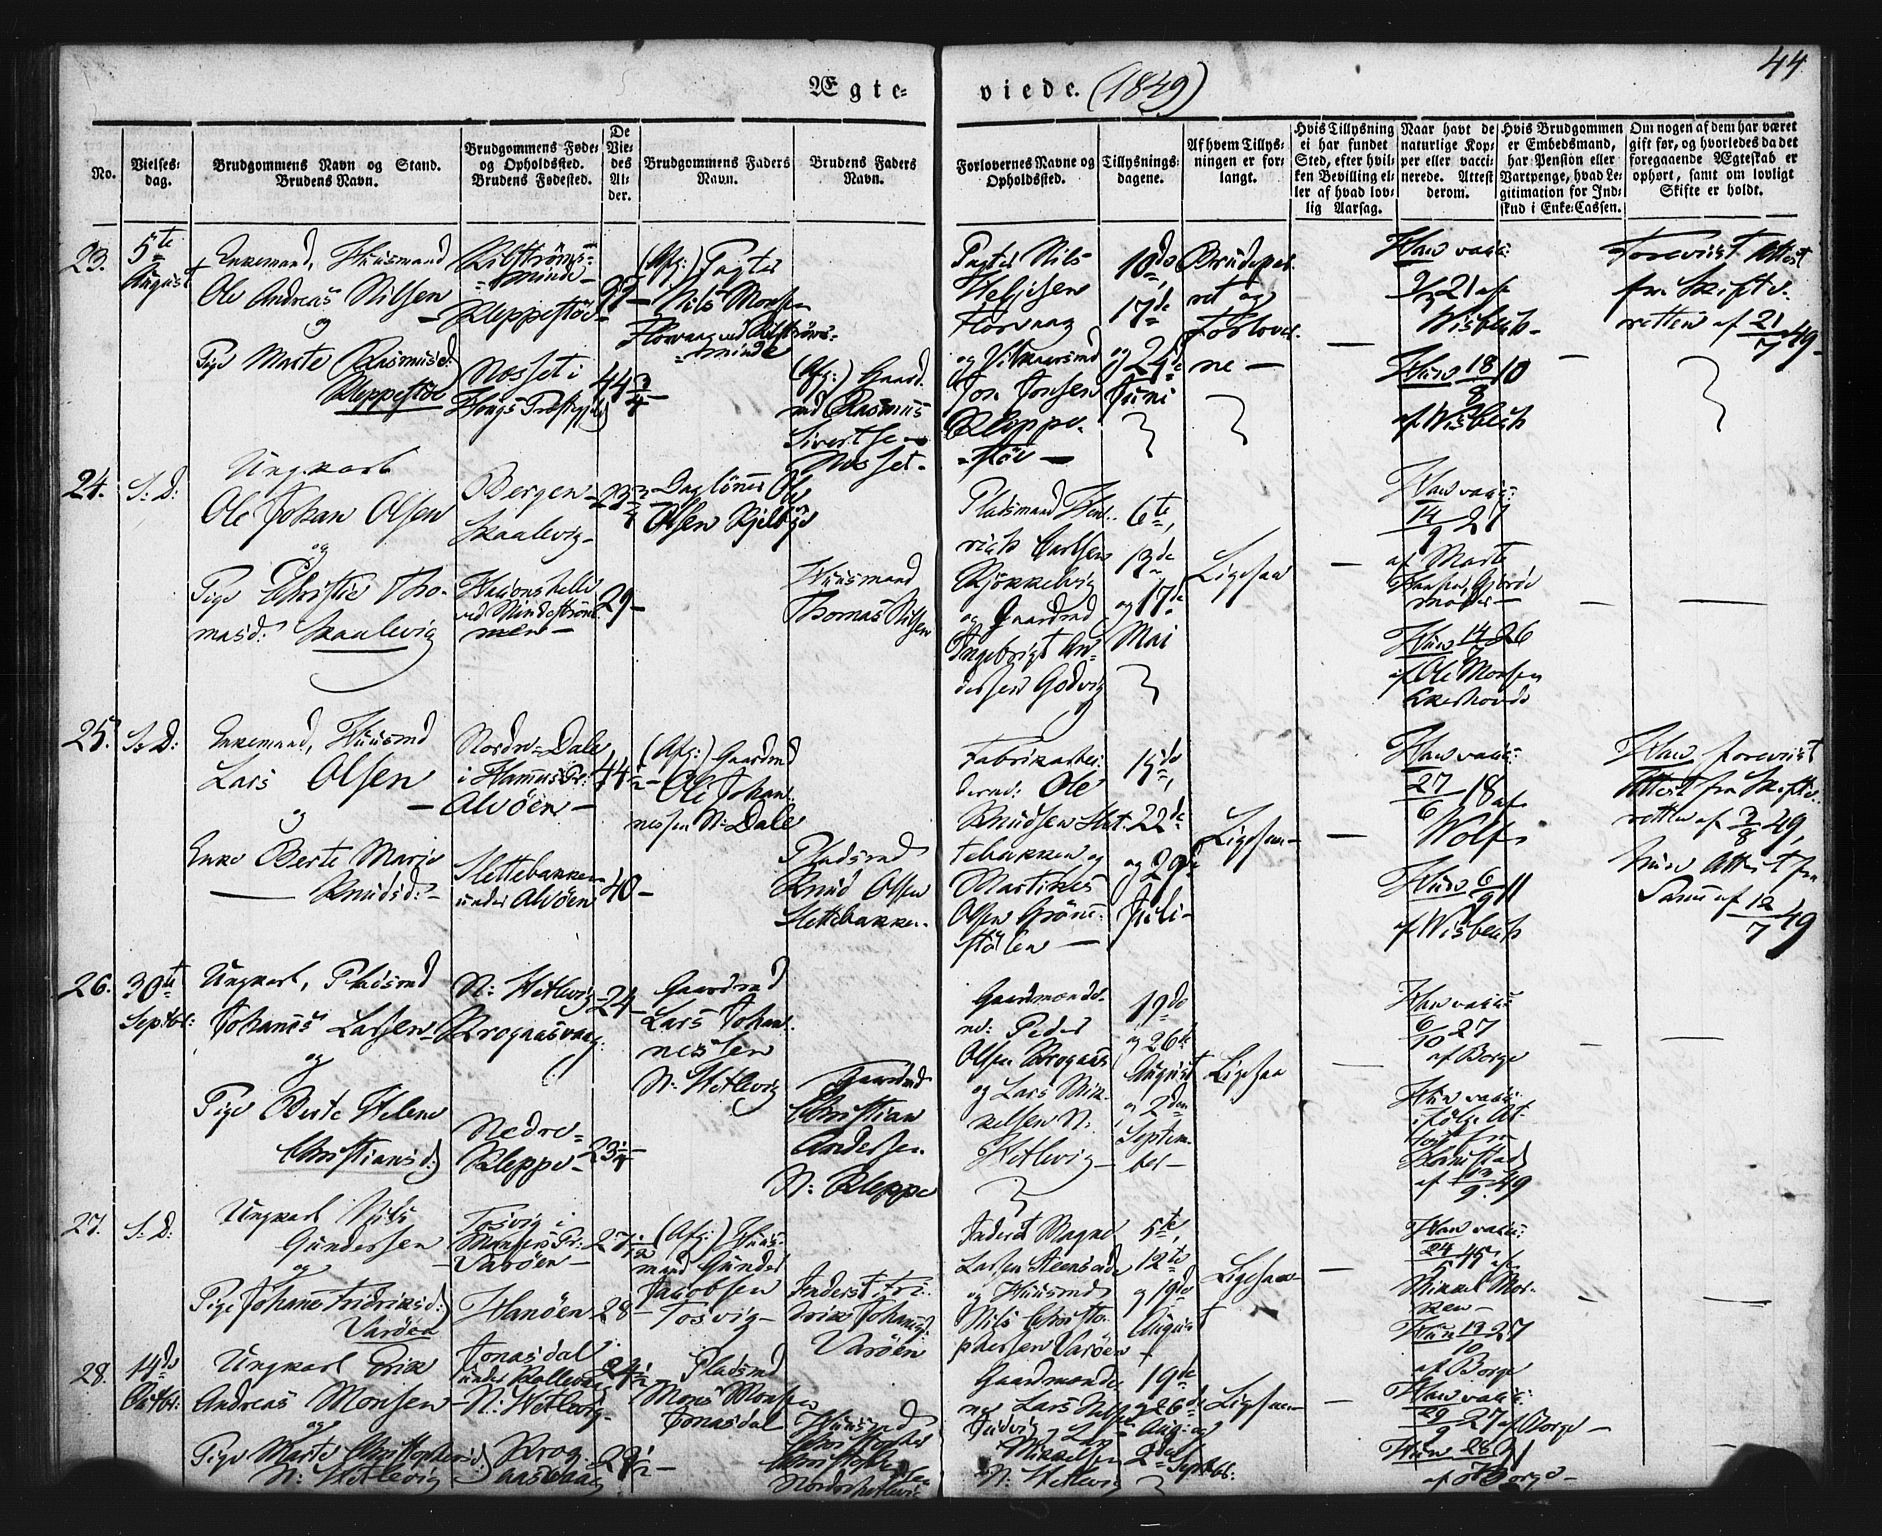 44
Ægteviede. (1849)
No.
Vielsesdag.
Brudgommens Navn og Stand.
Brudens Navn.
Brudgommens Føde-
og Opholdssted.
Brudens Fødested.
De
Vie-
des
Al-
der.
Brudgommens Faders
Navn.
Brudens Faders
Navn.
Forlovernes Navne og
Opholdssted.
Tillysnings-
dagene.
Af hvem Tillys-
ningen er for-
langt.
Hvis Tillysning
ei har fundet
Sted, efter hvil-
ken Bevilling el-
ler af hvad lov-
lig Aarsag.
Naar havt de
naturlige Kop-
per eller vacci-
nerede. Attest
derom.
Hvis Brudgommen
er Embedsmand,
har Pension eller
Vartpenge, hvad Le-
gitimation for Ind-
skud i Enke-Cassen.
Om nogen af dem har været
gift før, og hvorledes da det
foregaaende Ægteskab er
ophørt, samt om lovligt
Skifte er holdt.
23.
5te
August
Enkemand, Huusmand
Ole Andreas Nilsen
og
Pige Marte Rasmusd:
Kleppestøe
Kleppestøe
Nosset i
44 3/4
(Afg:) Pagter
Nils Monsen
(Afg:) Gaard-
md Rasmus
Sivertsen
Nosset
Pagter Nils
Florvaag
Jon Jonsen
Kleppe-
støe
10de
17de
og 24de
Juni
Brudepar-
ret og
Forlover-
ne
Han vacc:
21 af
Wisbech
Hun 18/8 10
af Wisbech
Foreviist Attest
fra Skifte-
retten af 21/7 49
24.
S: D:
Ungkarl
Ole Johan Olsen
og
Pige Christie Tho-
masd: Skaalevig
Bergen
Skaalevig
23 3/4
29
Daglønner Ole
Olsen
Huusmand
Thomas Nilsen
Pladsmand Hen-
rich Carlsen
og Gaardmd
Ingebrigt An-
dersen Godvig
6te,
13de
og 17de
Mai
Ligesaa
Han vacc:
14/9 27
af Marte
Hun 14/ 26
af Ole Monsen
25.
S: D:
Enkemand, Huusmd
Lars Olsen
og
Enke Berte Marie
Knudsd:
Nordre-Dale
i Hammers Pr:
Alvøen
Slettebakken
under Alvøen
44 1/2
40
(Afg:) Gaardmd
Ole Johan-
nessen N: Dale
Pladsmd
Knud Olsen
Slettebakken
Fabrikarbei-
derne: Ole
Knudsen Slet-
tebakken og
Martines
Olsen
15de,
22de
og 29de
Juli
Ligesaa
Han vacc:
27/6 18 af
Wolf
Hun 6/9 11
af Wisbech
Han foreviist
Attest fra Skifte-
retten af 3/8 49,
hun Attest fra
Samme af 12/7 49
26.
30te
Septbr:
Ungkarl, Pladsmd
Johannes Larsen
og
Pige Berte Helene
Christiansd:
N: Hetlevig
Krogaasvaag:
Nedre-
Kleppe
24
23 1/4
Gaardmd
Lars Johan-
nessen
N: Hetlevig
Gaardmd
Christian
Andersen
N: Kleppe
Gaardmænde-
ne: Peder
Olsen Krogaas
og Lars Mik-
kelsen N:
Hetlevig
19de
og 26de
August
og 2den
Septem-
ber
Ligesaa
Han vacc:
6/10 27
af Borge
Hun vacc:
ifølge At-
test fra
27.
S: D:
Ungkarl Nils
Gundersen
og
Pige Johanne Fridriksd:
Varøen
Tosvig i
Manger Pr:
Varøen
Hanøen
27 1/2
28
(Afg:) Huus-
mand Gunder
Jacobsen
Tosvig
Inderst Fri-
drik Johansen
Varøen
Inderst Magne
Larsen Steensøde
og Huusmd
Nils Christo-
phersen Varøen
5te,
12te
og 19de
August
Ligesaa
Han vacc:
24/5 45 af
Mikkel Mor-
ken
Hun 19/10 27
af Borge
28.
14de
Octbr:
Ungkarl Erik
Andreas Monsen
og
Pige Marte Christophersd:
N: Hetlevig
Jonasdal
N: Hetlevig
Krog-
aasvaag
24 1/2
Pladsmd
Mons Monsen
Jonasdal
Huusmd
Christopher
Gaardmænde-
ne Lars Nilsen
og Lars
Mikkelsen
N: Hetlevig
19de
26de
Aug: og
2den Septbr:
Ligesaa
Han vacc:
29/9 27 af Borge
Hun
af Borge